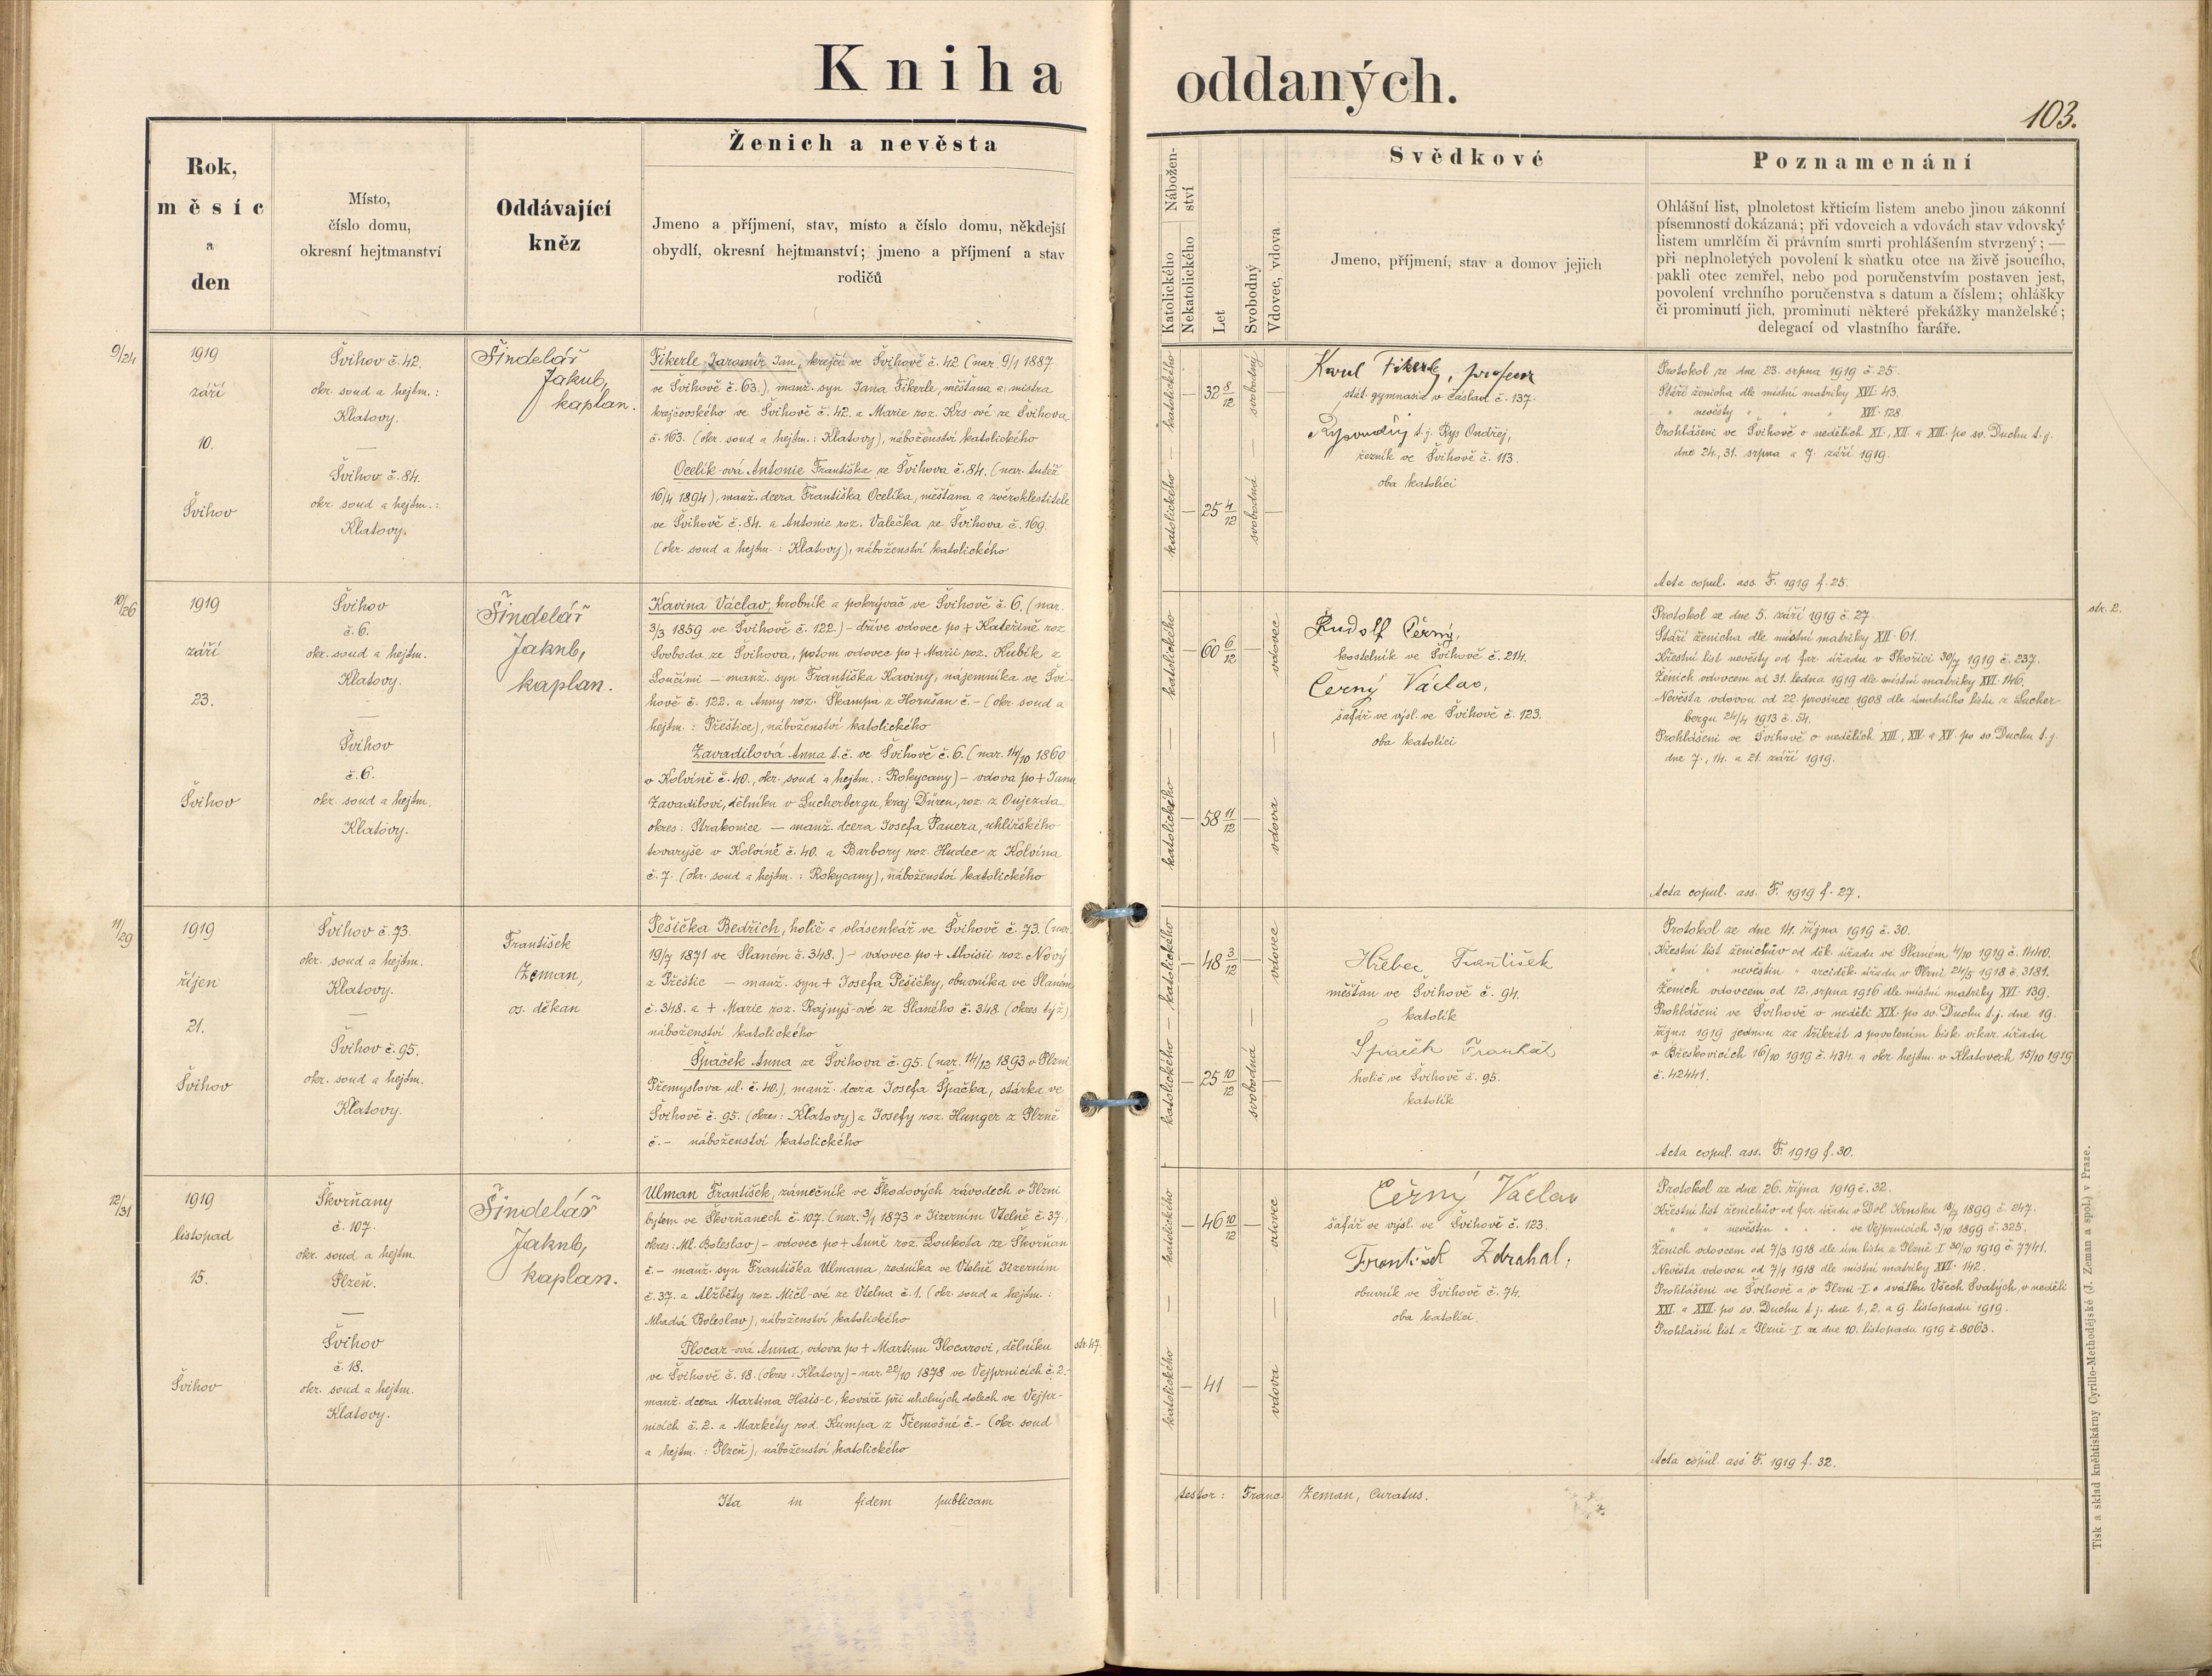 Kniha oddaných.
103.
Rok,
měsíc
a
den
Místo,
číslo domu,
okresní hejtmanství
Oddávající
kněz
Ženich a nevěsta
Jmeno a příjmení, stav, místo a číslo domu, někdejší
obydlí, okresní hejtmanství; jmeno a příjmení a stav
rodičů
Nábožen-
ství
Katolického
Nekatolického
Let
Svobodný
Vdovec, vdova
Svědkové
Jmeno, příjmení, stav a domov jejich
Poznamenání
Ohlášní list, plnoletost křticím listem anebo jinou zákonní
písemností dokázaná; při vdovcích a vdovách stav vdovský
listem umrlčím či právním smrti prohlášením stvrzený; —
při neplnoletých povolení k sňatku otce na živě jsoucího,
pakli otec zemřel, nebo pod poručenstvím postaven jest,
povolení vrchního poručenstva s datum a číslem; ohlášky
či prominutí jich, prominutí některé překážky manželské;
delegací od vlastního faráře.
9/24
1919
září
10.
Švihov
Švihov č. 42.
okr. soud a hejtm.:
Klatovy.
—
Švihov č. 84.
okr. soud a hejtm.:
Klatovy.
Šindelář
Jakub,
kaplan.
Fikerle Jaromír Jan, krejčí ve Švihově č. 42 (nar. 9/1 1887
ve Švihově č. 63.), manž. syn Jana Fikerle, měšťana a mistra
krajčovského ve Švihově č. 42. a Marie roz. Krs-ové ze Švihova
č. 163. (okr. soud a hejtm.: Klatovy), náboženství katolického
Ocelík-ová Antonie Františka ze Švihova č. 84. (nar. tutéž
16/4 1894), manž. dcera Františka Ocelíka, měšťana a zvěroklestitele
ve Švihově č. 84. a Antonie roz. Valečka ze Švihova č. 169.
(okr. soud a hejtm.: Klatovy), náboženství katolického
katolického — 32 8/12 svobodný —
katolického — 25 4/12 svobodná —
Karel Fikerle, profesor
stát. gymnasia v Čáslavi č. 137.
t. j. Rys Ondřej,
řezník ve Švihově č. 113.
oba katolíci
Protokol ze dne 23. srpna 1919 č. 25.
Stáří ženicha dle místní matriky XVI. 43.
" nevěsty " " " XVI. 128.
Prohlášeni ve Švihově o nedělích XI., XII. a XIII. po sv. Duchu t. j.
dne 24., 31. srpna a 7. září 1919.
Acta copul. ass. F. 1919 f. 25.
10/26
1919
září
23.
Švihov
Švihov
č. 6.
okr. soud a hejtm.
Klatovy.
—
Švihov
č. 6.
okr. soud a hejtm.
Klatovy.
Šindelář
Jakub,
kaplan.
Kavina Václav, hrobník a pokrývač ve Švihově č. 6. (nar.
3/3 1859 ve Švihově č. 122.) – dříve vdovec po + Kateřině roz.
Svoboda ze Švihova, potom vdovec po + Marii roz. Kubík z
— manž. syn Františka Kaviny, nájemníka ve Švi-
hově č. 122. a Anny roz. Škampa z Horušan č. – (okr. soud a
hejtm.: Přeštice), náboženství katolického
Zavadilová Anna t. č. ve Švihově č. 6. (nar. 14/10 1860
v Kolvíně č. 40., okr. soud a hejtm.: Rokycany) – vdova po + Janu
Zavadilovi, dělníku v Lucherbergu, kraj. Düren, roz. z Oujezda,
okres: Strakonice — manž. dcera Josefa Pauera, uhlířského
tovaryše v Kolvíně č. 40. a Barbory roz. Hudec z Kolvína
č. 7. (okr. soud a hejtm.: Rokycany), náboženství katolického
katolického — 60 6/12 — vdovec
katolického — 58 11/12 — vdova
Rudolf Černý,
kostelník ve Švihově č. 214.
Černý Václav,
šafář ve výsl. ve Švihově č. 123.
oba katolíci
Protokol ze dne 5. září 1919 č. 27.
Stáří ženicha dle místní matriky XII. 61.
Křestní list nevěsty od far. úřadu v Skořici 30/7 1919 č. 237.
Ženich vdovcem od 31. ledna 1919 dle místní matriky XVI. 146.
Nevěsta vdovou od 22. prosince 1908 dle úmrtního listu z Lucher-
bergu 24/4 1913 č. 54.
Prohlášeni ve Švihově o nedělích XIII., XIV. a XV. po sv. Duchu t. j.
dne 7., 14. a 21. září 1919.
Acta copul. ass. F. 1919 f. 27.
str. 2.
11/29
1919
říjen
21.
Švihov
Švihov č. 73.
okr. soud a hejtm.
Klatovy.
—
Švihov č. 95.
okr. soud a hejtm.
Klatovy.
František
Zeman,
os. děkan
Pešička Bedřich, holič a vlásenkář ve Švihově č. 73. (nar.
19/7 1871 ve Slaném č. 348.) – vdovec po + Aloisii roz. Nový
z Přeštic — manž. syn + Josefa Pešičky, obuvníka ve Slaném
č. 348. a + Marie roz. Rajnyš-ové ze Slaného č. 348. (okres týž)
náboženství katolického
Špaček Anna ze Švihova č. 95. (nar. 14/12 1893 v Plzni
Přemyslova ul. č. 40.), manž. dcera Josefa Špačka, stárka ve
Švihově č. 95. (okres: Klatovy) a Josefy roz. Hunger z Plzně
č. – náboženství katolického
katolického — 48 3/12 — vdovec
katolického — 25 10/12 svobodná —
Hřebec František
měšťan ve Švihově č. 94.
katolík
holič ve Švihově č. 95.
katolík
Protokol ze dne 14. října 1919 č. 30.
Křestní list ženichův od děk. úřadu ve Slaném 4/10 1919 č. 1440.
" " nevěstin " arciděk. úřadu v Plzni 24/5 1918 č. 3181.
Ženich vdovcem od 12. srpna 1916 dle místní matriky XVI. 139.
Prohlášeni ve Švihově v neděli XIX. po sv. Duchu t. j. dne 19.
října 1919 jednou za třikrát s povolením bisk. vikar. úřadu
v Březkovicích 16/10 1919 č. 434. a okr. hejtm. v Klatovech 15/10 1919
č. 42441.
Acta copul. ass. F. 1919 f. 30.
12/31
1919
listopad
15.
Švihov
Škvrňany
č. 107.
okr. soud a hejtm.
Plzeň.
—
Švihov
č. 18.
okr. soud a hejtm.
Klatovy.
Šindelář
Jakub,
kaplan.
Ulman František, zámečník ve Škodových závodech v Plzni
bytem ve Škvrňanech č. 107. (nar. 3/1 1873 v Jizerním Vtelně č. 37.,
okres: Ml. Boleslav) – vdovec po + Anně roz. Loukota ze Škvrňan
č. – manž. syn Františka Ulmana, zedníka ve Vtelně Jizerním
č. 37. a Alžběty roz. Mičl-ové ze Vtelna č. 1. (okr. soud a hejtm.:
Mladá Boleslav), náboženství katolického
Plocar-ová Anna, vdova po + Martinu Plocarovi, dělníku
str. 47.
ve Švihově č. 18. (okres: Klatovy) – nar. 22/10 1878 ve Vejprnicích č. 2. –
manž. dcera Martina Hais-e, kováře při uhelných dolech ve Vejpr-
nicích č. 2. a Markéty rod. Kumpa z Třemošné č. – (okr. soud
a hejtm.: Plzeň), náboženství katolického
katolického — 46 10/12 — vdovec
katolického — 41 — vdova
Černý Václav
šafář ve výsl. ve Švihově č. 123.
František Zdrahal,
obuvník ve Švihově č. 74.
oba katolíci.
Protokol ze dne 26. října 1919 č. 32.
Křestní list ženichův od far. úřadu v Dol. Krnsku 18/7 1899 č. 247.
" " nevěstin " " " ve Vejprnicích 3/10 1899 č. 325.
Ženich vdovcem od 7/3 1918 dle úm. listu z Plzně I 30/10 1919 č. 7741.
Nevěsta vdovou od 7/1 1918 dle místní matriky XVI. 142.
Prohlášeni ve Švihově a v Plzni I. o svátku Všech Svatých, v neděli
XXI. a XXII. po sv. Duchu t. j. dne 1., 2. a 9. listopadu 1919.
Prohlašní list z Plzně I ze dne 10. listopadu 1919 č. 8063.
Acta copul. ass. F. 1919 f. 32.
Ita in fidem publicam testor: Franc. Zeman, Curatus.
Tisk a sklad knihtiskárny Cyrillo-Methodějské (J. Zeman a spol.) v Praze.